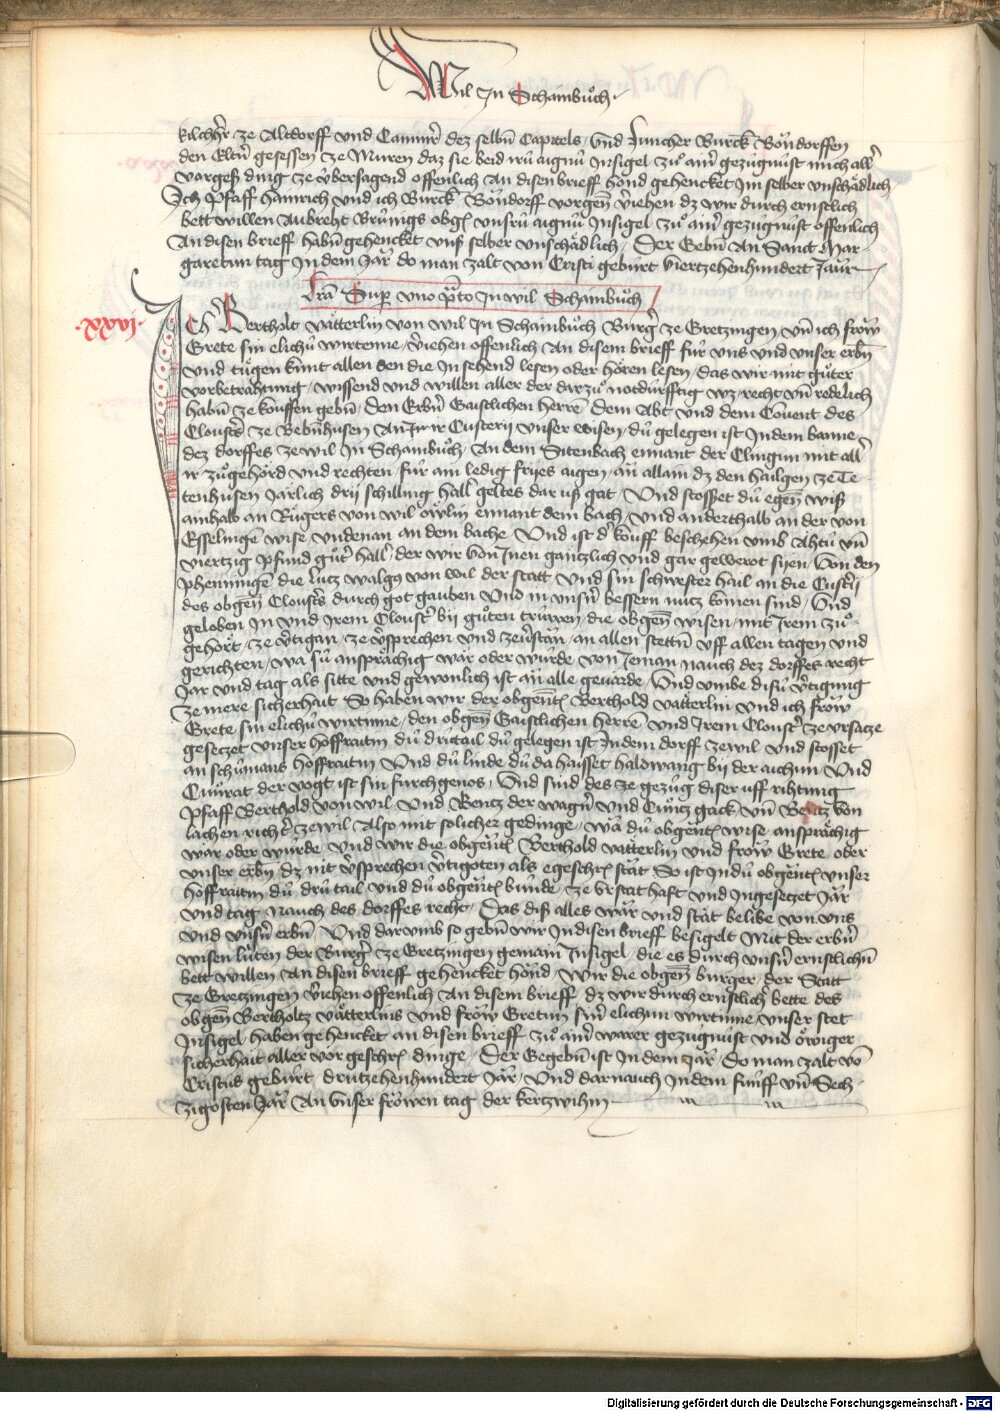 Wil In Schainbuͦch·
kilchhr̄ ze Altdorff vnd Camm̄r dez selbn̄ Capitels / vnd Juncher Burck Boͤndorffen
den Eltn̄ gesessen ze Muren daz sie beid irū aignū Insigel zuͦ ainr̄ gezúgnúst mich allr̄
vorgeß ding ze v̈bersagend offenlich An disen brieff hond gehencket Im selber vnschaͤdlich
Ich Pfaff Hainrich vnd ich Burck Boͤndorff vorgen̄ v̄iehen dz wir durch ernstlich
bett willen Aubreht Brúnigs obgſ vnsrú aignú Insigel zuͦ ainr̄ gezúgnúst offenlich
An disen brieff habn̄ gehencket vnß selber vnschaͤdlich / Der Gebn̄ An Sanct Mar-
garetun tag In dem Jar do man zalt von Cristi gebúrt viertzehenhundert Jaur
Lrā Sup̱ vno p̄to In wil Schainbuͦch
·xxvi·
Ich Bertholt vaͤtterlin von wil In Schainbuͦch Burgr̄ ze Gretzingen / vn̄ ich froͮw
Grete sin elichú wirtenne / v̄iehen offenlich An disem brieff fúr vns vnd vnser erbn̄
vnd tuͤgen kunt allen den die In sehend lesen oder hoͤren lesen / das wir mit guͦter
vorbetrahtung / wissend vnd willen aller der darzuͦ notdúrfftig wz / recht vn̄ redelich
habn̄ ze kouffen gebn̄ / Den Erbn̄ Gaistlichen herrē Dem Abt vnd dem Couent des
Cloustr̄s ze Bebn̄husen An Ir Custerij vnser wisen / dú gelegen ist Indem banne
dez dorffes ze wil In Schainbuͦch / An dem Sitenbach ennant der Clingun mit allr̄
ir zuͦgehoͤrd vnd rechten / fúr ain ledig frijes aigen / ān allain dz den hailgen ze Te-
tenhusen Jaͤrlich drij schilling hallr̄ geltes dar vß gat / Vnd stosset dú egen̄ wiß
ainhalb an Ruͤgers von wil oͤwlin ennant dem bach / vnd anderthalb an der von
Esselingē wise / vndenan an dem bache / Vnd ist dr̄ kouff beschehen vmb Ahtú vn̄
viertzig pfund guͦtr̄ hallr̄ / der wir von Inen gantzlich vnd gar gewerot syen / Von den
phenningē die Lutz walgg von wil der statt vnd sin schwester Hail an die Custrij
des obgen̄ Cloustr̄s durch got gauben Vnd in vnsn̄ bessern nutz komen sind / Vnd
geloben In vnd Irem Cloustr̄ bij guͦten trúwen / die obgen̄ wisen / mit Irem zuͦ-
gehoͤrt / ze v̄tigan / ze v̄sprechen vnd zeu̓stān / an allen stettn̄ vff allen tagen vnd
gerichten / wa sú anspraͤchig waͤr oder wúrde von Jeman nauch dez dorffes recht
Jar vnd tag als sitte vnd gewonlich ist ān alle geuarde / Vnd vmbe disú v̄tigung
ze mere sicherhait So haben wir der obgentſ Berthold vaͤtterlin vnd ich froͮw
Grete sin elichú wirtinne / den obgen̄ Gaistlichen herrē vnd Irem Cloustr̄ ze vrsatze
gesetzet vnser hoffraitin dú drútail dú gelegen ist Indem dorff zewil vnd stosset
an schúmans hoffraitin Vnd dú linde dú da haisset haldwang bij der aichun Vnd
Cuͦnrat der vogt ist sin furchgenos / Vnd sind des ze gezúg diser vff rihtung
Pfaff Berthold von wil / Vnd Bentz der wagn̄ vnd Cuͦntz gack / vn̄ Bentz von
lachen richtr̄ zewil / Also mit solicher gedinge / wa dú obgentſ wise anspraͤchig
waͤr oder wúrde / Vnd wir die obgen̄tſ Berthold vatterlin vnd froͮw Grete / oder
vnser erbn̄ / dz nit v̄sprechen v̄tigoten als egeschrſ staͤt So ist In dú obgen̄tſ vnser
hoffraitin dú drútail vnd dú obgen̄tſ búnde / ze vrstat haft vnd Ingesetzet Jar
vnd tag nauch des dorffes recht / Das diß alles waͤr vnd staͤt belibe von vns
vnd vnsn̄ erbn̄ / Vnd darumb so gebn̄ wir In disen brieff besigelt Mit der erbn̄
wisen lúten der Burgr̄ ze Gretzingen gemain Insigel / die es durch vnsn̄ ernstlichn̄
bett willen An disen brieff gehencket hond / Wir die obgen̄ burger / der Statt
ze Gretzingen v̄iehen offenlich An disem brieff / dz wir durch ernstlichr̄ bette des
obgen̄ Bertholtz vaͤtterlins vnd froͮw Gretun sinr̄ elichun wirtinne / vnser stet
Insigel haben gehencket an disen brieff zuͦ ainr̄ warer gezúgnúst vnd oͤwiger
sicherhait aller vor geschrſ dinge / Der Gegebn̄ ist In dem Jar Do man zalt vō
Cristus gebúrt / drútzehenhundert Jar / Vnd darnauch Indem fúnff vn̄ Sech-
zigosten Jar An vnser froͮwen tag der kertzwihin
Digitalisierung gefördert durch die Deutsche Forschungsgemeinschaft - DFG